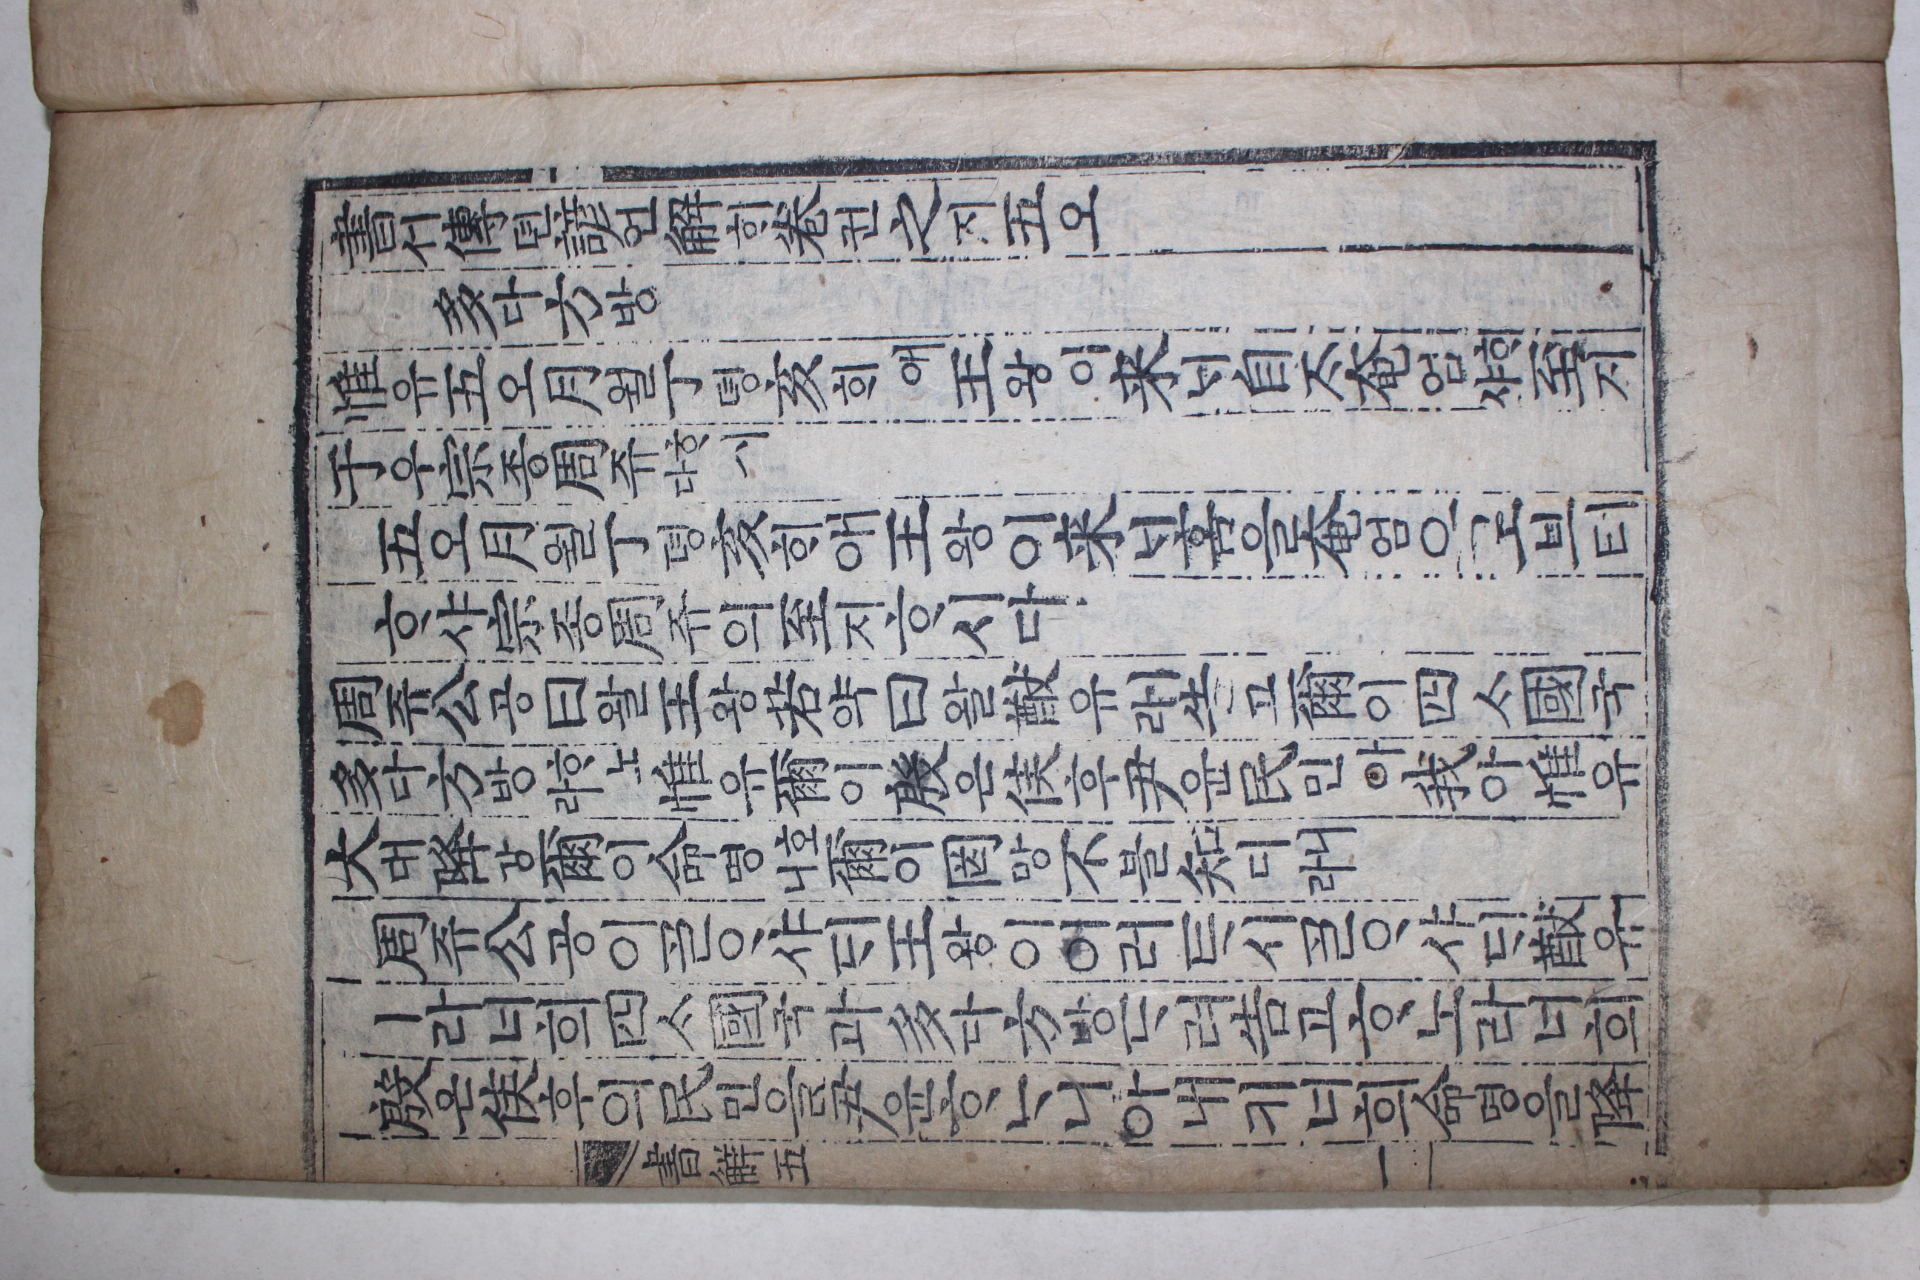 書셔傳뎐諺언解ᄒᆡ卷권之지五오
多다方방
惟유五오月월丁뎡亥ᄒᆡ애王왕이來ᄂᆡ自ᄌᆞ奄엄ᄒᆞ샤至지
于우宗종周쥬ᄒᆞ시다
五오月월丁뎡亥ᄒᆡ애王왕이來ᄂᆡ홈을奄엄으로브터
ᄒᆞ샤宗종周쥬의至지ᄒᆞ시다
周쥬公공曰왈王왕若약曰왈猷유ㅣ라告고爾이四ᄉᆞ國국
多다方방ᄒᆞ노라惟유爾이殷은侯후尹윤民민아我아惟유
大대降강爾이命명호니爾이罔망不블知디니라
周쥬公공이ᄀᆞᆯᄋᆞ샤ᄃᆡ王왕이이러ᄐᆞ시ᄀᆞᆯᄋᆞ샤ᄃᆡ猷유
ㅣ라너희四ᄉᆞ國국과多다方방ᄃᆞ려告고ᄒᆞ노라너희
殷은侯후의民민을尹윤ᄒᆞᄂᆞ니아내키너희命명을降
書解五
一